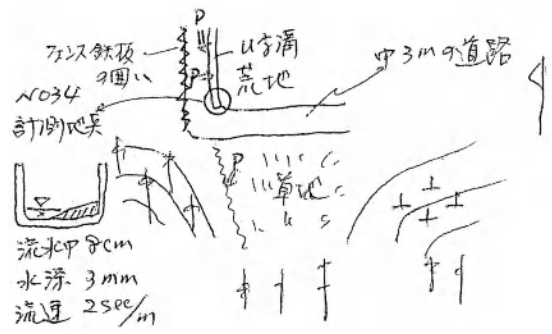 フェンス鉄板
の囲い
U字溝
荒地
巾3mの道路
NO34
計測地点
草地
流水巾 8cm
水深 3mm
流速 2sec/m
P
P
P